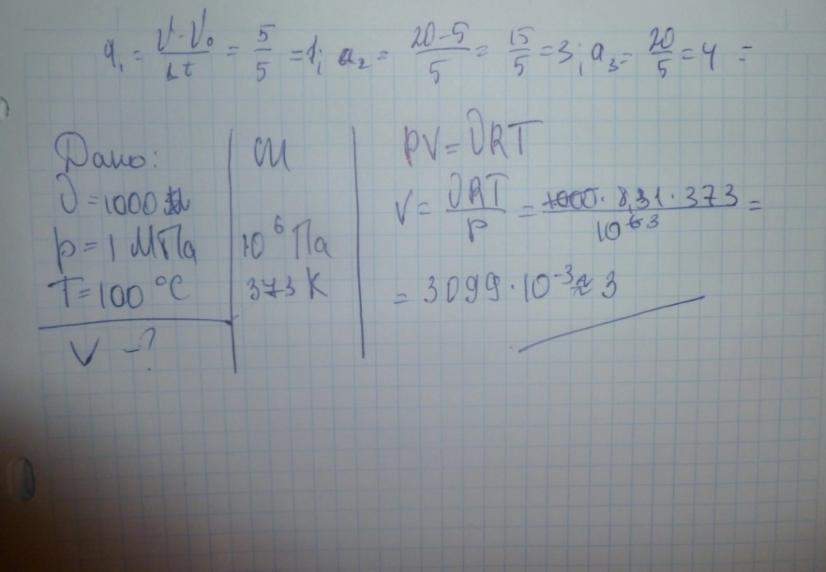 a₁ = (V-V₀)/Δt = 5/5 = 1; a₂ = (20-5)/5 = 15/5 = 3; a₃ = 20/5 = 4 =
Дано:
ϑ = 1000
p = 1 МПа
T = 100 °C
V - ?
СИ
10⁶ Па
373 K
pV = ϑRT
V = ϑRT/p = 1000 · 8,31 · 373/10⁶ ³ =
= 3099 · 10⁻³ ≈ 3